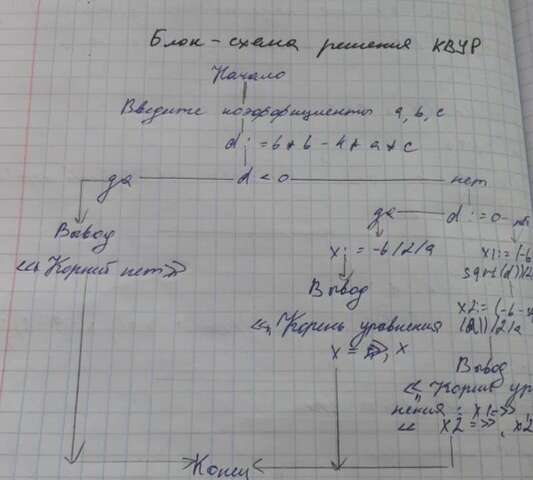 Блок-схема решения КВУР
Начало
Введите коэффициенты a, b, c
d := b * b - 4 * a * c
да d < 0 нет
да d := 0
Вывод
<< Корней нет >>
x := -b/2/a
x1:= (-b
sqrt(d))/2
Вывод
x2:= (-b -
/2/a
<< Корень уравнения
x = >>, x
Вывод
<< Корни ур
нения : x1 = >>
<< x2 = >>, x2
Конец